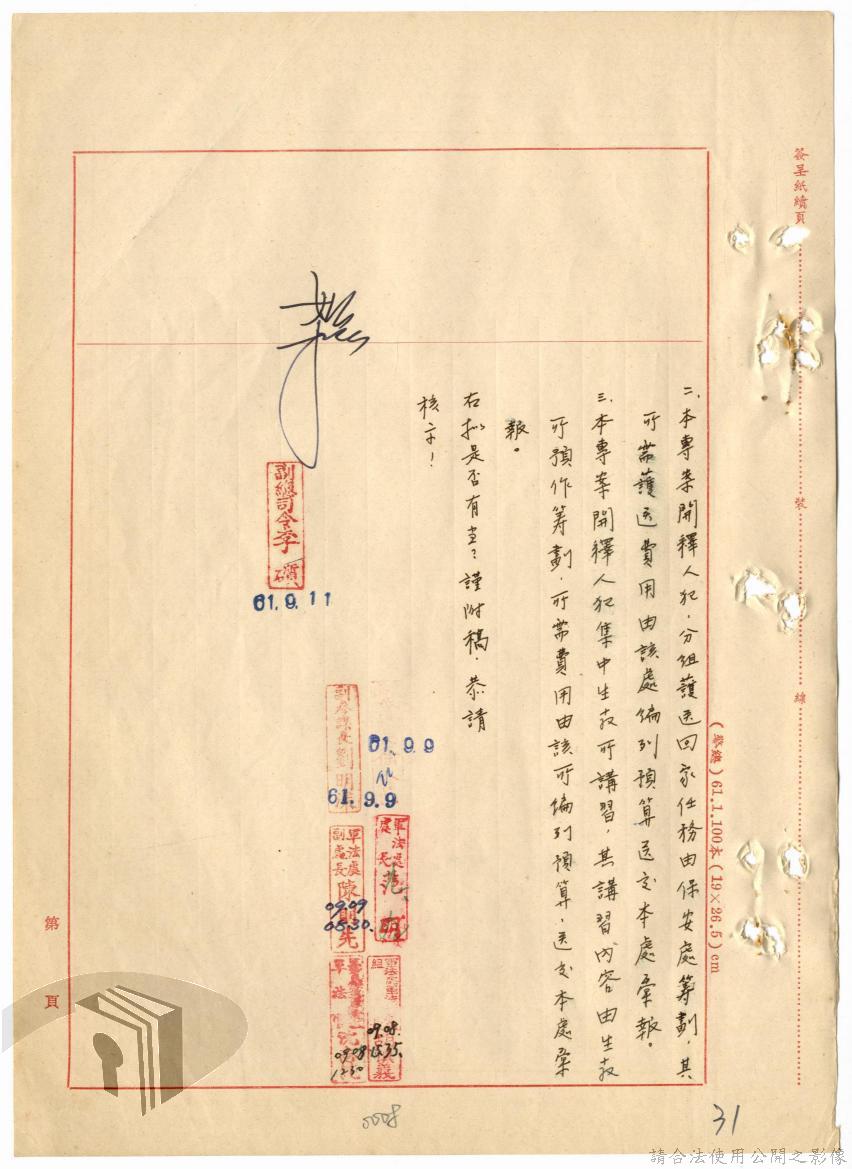 簽呈紙續頁
裝
線
(警總)61.1.100本(19×26.5)cm
二、本專案開釋人犯,分組護送回家任務由保安處籌劃,其
所需護送費用由該處編列預算送交本處彙報。
三、本專案開釋人犯集中生教所講習,其講習內容由生教
所預作籌劃,所需費用由該所編列預算,送交本處彙
報。
右擬是否有當?謹附稿,恭請
核示!
61.9.9
軍法處
處長
范明
09.08.
15.35.
副參謀長劉明
61.9.9
軍法處
副處長
陳
09.09
08.30.
軍法
09.08
副總司令李
61.9.11
第
頁
0008
31
請合法使用公開之影像